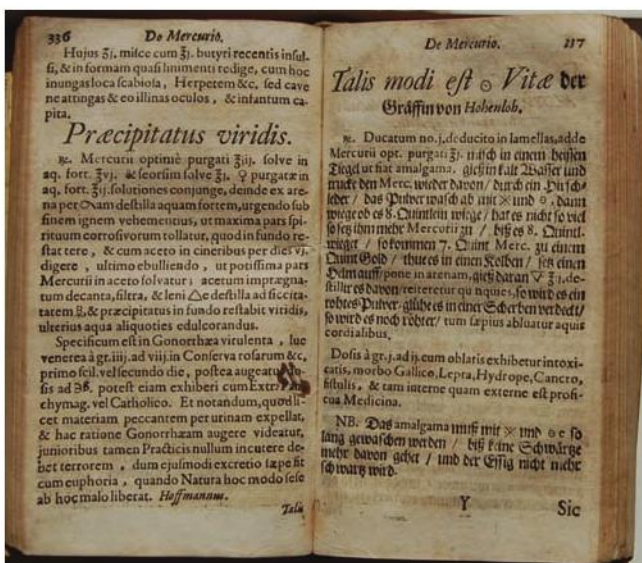 336 De Mercurio.
Hujus ℥j. misce cum ℥j. butyri recentis insul-
si, & in formam quasi linimenti redige, cum hoc
inungas loca scabiosa, Herpetem &c. sed cave
ne attingas & eo illinas oculos, & infantum ca-
pita.
Præcipitatus viridis.
℞. Mercurii optimè purgati ℥iij. solve in
aq. fort. ℥vj. & seorsim solve ℥j. ♀ purgatæ in
aq. fort. ℥ij. solutiones conjunge, deinde ex are-
na per destilla aquam fortem, urgendo sub
finem ignem vehementius, ut maxima pars spi-
rituum corrosivorum tollatur, quod in fundo re-
stat tere, & cum aceto in cineribus per dies vj.
digere, ultimo ebulliendo, ut potissima pars
Mercurii in aceto solvatur; acetum imprægna-
tum decanta, filtra, & leni △e destilla ad siccita-
tatem, & præcipitatus in fundo restabit viridis,
ulterius aqua aliquoties edulcorandus.
Specificum est in Gonorrhæa virulenta, lue
venerea à gr. iij. ad viij. in Conserva rosarum &c.
primo scil. vel secundo die, postea augeatur do-
sis ad ℈ß. potest eiam exhiberi cum Extr. Pan-
chymag. vel Catholico. Et notandum, quod li-
cet materiam peccantem per urinam expellat,
& hac ratione Gonorrhæam augere videatur,
junioribus tamen Practicis nullum incutere de-
bet terrorem, dum ejusmodi excretio sæpe fit
cum euphoria, quando Natura hoc modo sese
ab hoc malo liberat. Hoffmannus.
Talis
De Mercurio. 337
Talis modi est ☉ Vitæ der
Gräffin von Hohenloh.
℞. Ducatum no. j. deducito in lamellas, adde
Mercurii opt. purgati ℥j. misch in einem heissen
Tiegel ut fiat amalgama. gieß in kalt Wasser und
trucke den Merc. wieder davon / durch ein Hirsch-
leder / das Pulver wasch ab mit und, dann
wiege ob es 8. Quintlein wiege / hat es nicht so viel
so setz ihm mehr Mercurii zu / biß es 8. Quintl.
wieget / so kommen 7. Quint Merc. zu einem
Quint Gold / thue es in einen Kolben / setz einen
Helm auff / pone in arenam, gieß daran ℥j. de-
stillir es davon / reiteretur quinquies, so wird es ein
rohtes Pulver. glühe es in einer Scherben verdeckt /
so wird es noch röhter / tum sæpius abluatur aquis
cordialibus.
Dosis à gr. j. ad ij. cum oblatis exhibetur intoxi-
catis, morbo Gallico, Lepra, Hydrope, Cancro,
fistulis, & tam interne quam externe est profi-
cua Medicina.
NB. Das amalgama muß mit und so
lang gewaschen werden / biß keine Schwärtze
mehr davon gehet / und der Essig nicht mehr
schwartz wird.
Y Sic